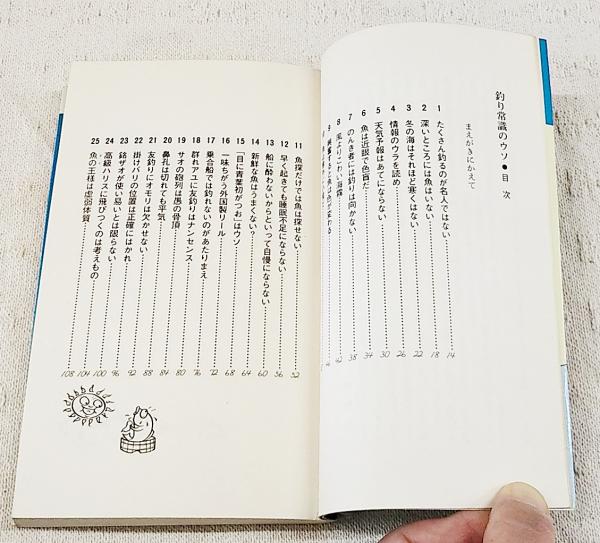 釣り常識のウソ●目次
まえがきにかえて
1 たくさん釣るのが名人ではない 14
2 深いところには魚はいない 18
3 冬の海はそれほど寒くはない 22
4 情報のウラを読め 26
5 天気予報はあてにならない 30
6 魚は近眼で色盲だ 34
7 のんき者には釣りは向かない 38
8 風よりこわい海霧 42
9
11 魚探だけでは魚は探せない 52
12 早く起きても睡眠不足にならない 56
13 船に酔わないからといって自慢にならない 60
14 新鮮な魚はうまくない? 64
15 「目に青葉初がつお」はウソ 68
16 一味ちがう外国製リール 72
17 乗合船では釣れないのがあたりまえ 76
18 群れアユに友釣りはナンセンス 80
19 サオの砲列は愚の骨頂
20 鼻孔は切れても平気 84
21 友釣りにオモリは欠かせない 88
22 掛けバリの位置は正確にはかれ 92
23 銘ザオが使い易いとは限らない 96
24 高級ハリスに飛びつくのは考えもの 100
25 魚の王様は虚弱体質 104
108